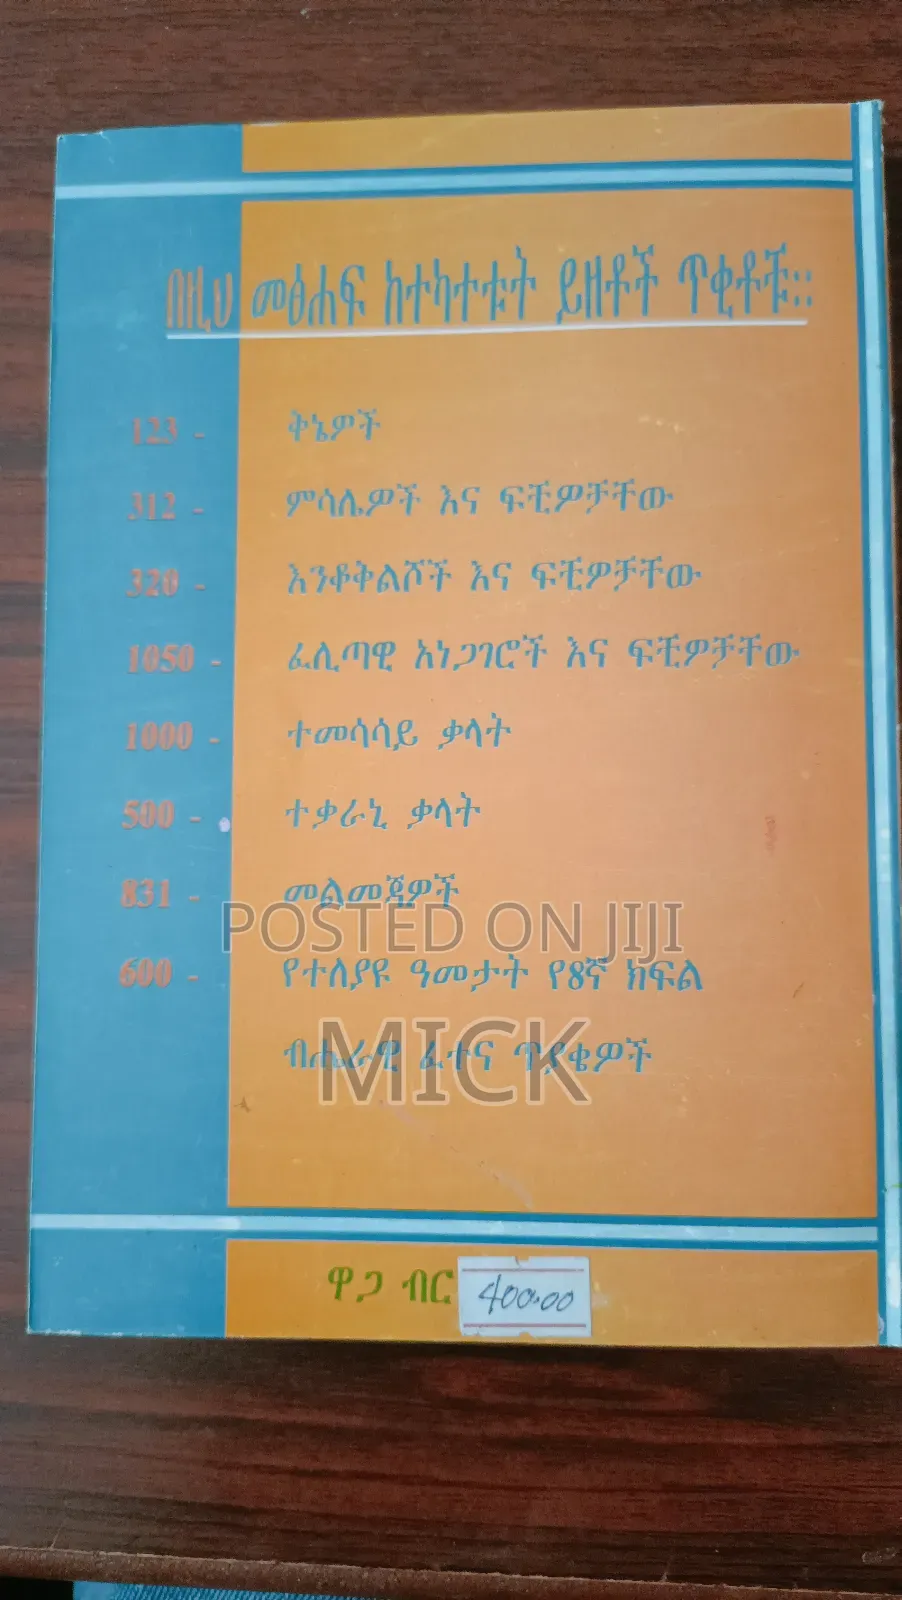 በዚህ መፅሐፍ ከተካተቱት ይዘቶች ጥቂቶቹ፡፡
123 - ቅኔዎች
312 - ምሳሌዎች እና ፍቺዎቻቸው
320 - እንቆቅልሾች እና ፍቺዎቻቸው
1050 - ፈሊጣዊ አነጋገሮች እና ፍቺዎቻቸው
1000 - ተመሳሳይ ቃላት
500 - ተቃራኒ ቃላት
831 - መልመጃዎች
POSTED ON JIJI
600 - የተለያዩ ዓመታት የ8ኛ ክፍል
ብሔራዊ ፈተና ጥያቄዎች
MICK
ዋጋ ብር 400.00